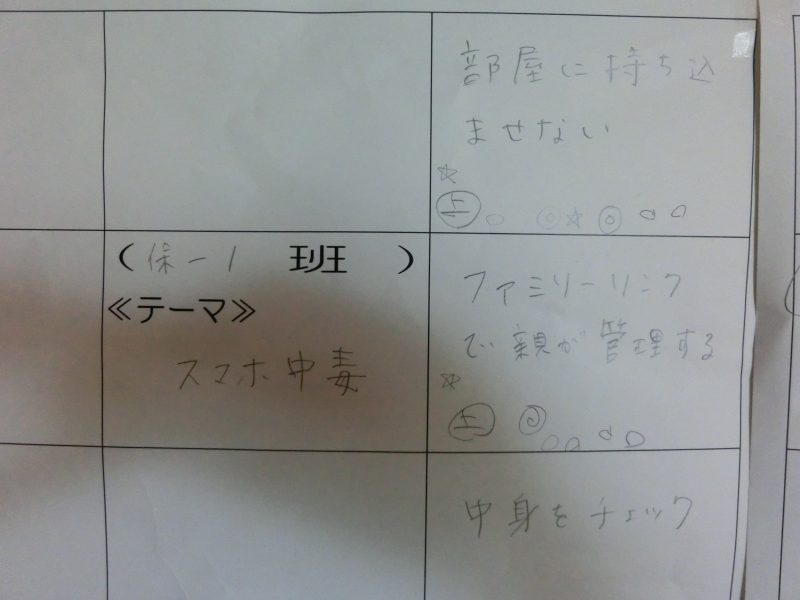 部屋に持ち込
ませない
☆
上 ○ ◎ ☆ ◎ ○ ○
(保-1 班 )
≪テーマ≫
スマホ中毒
ファミリーリンク
で親が管理する
☆
上 ◎ ○ ○ ○ ○
中身をチェック